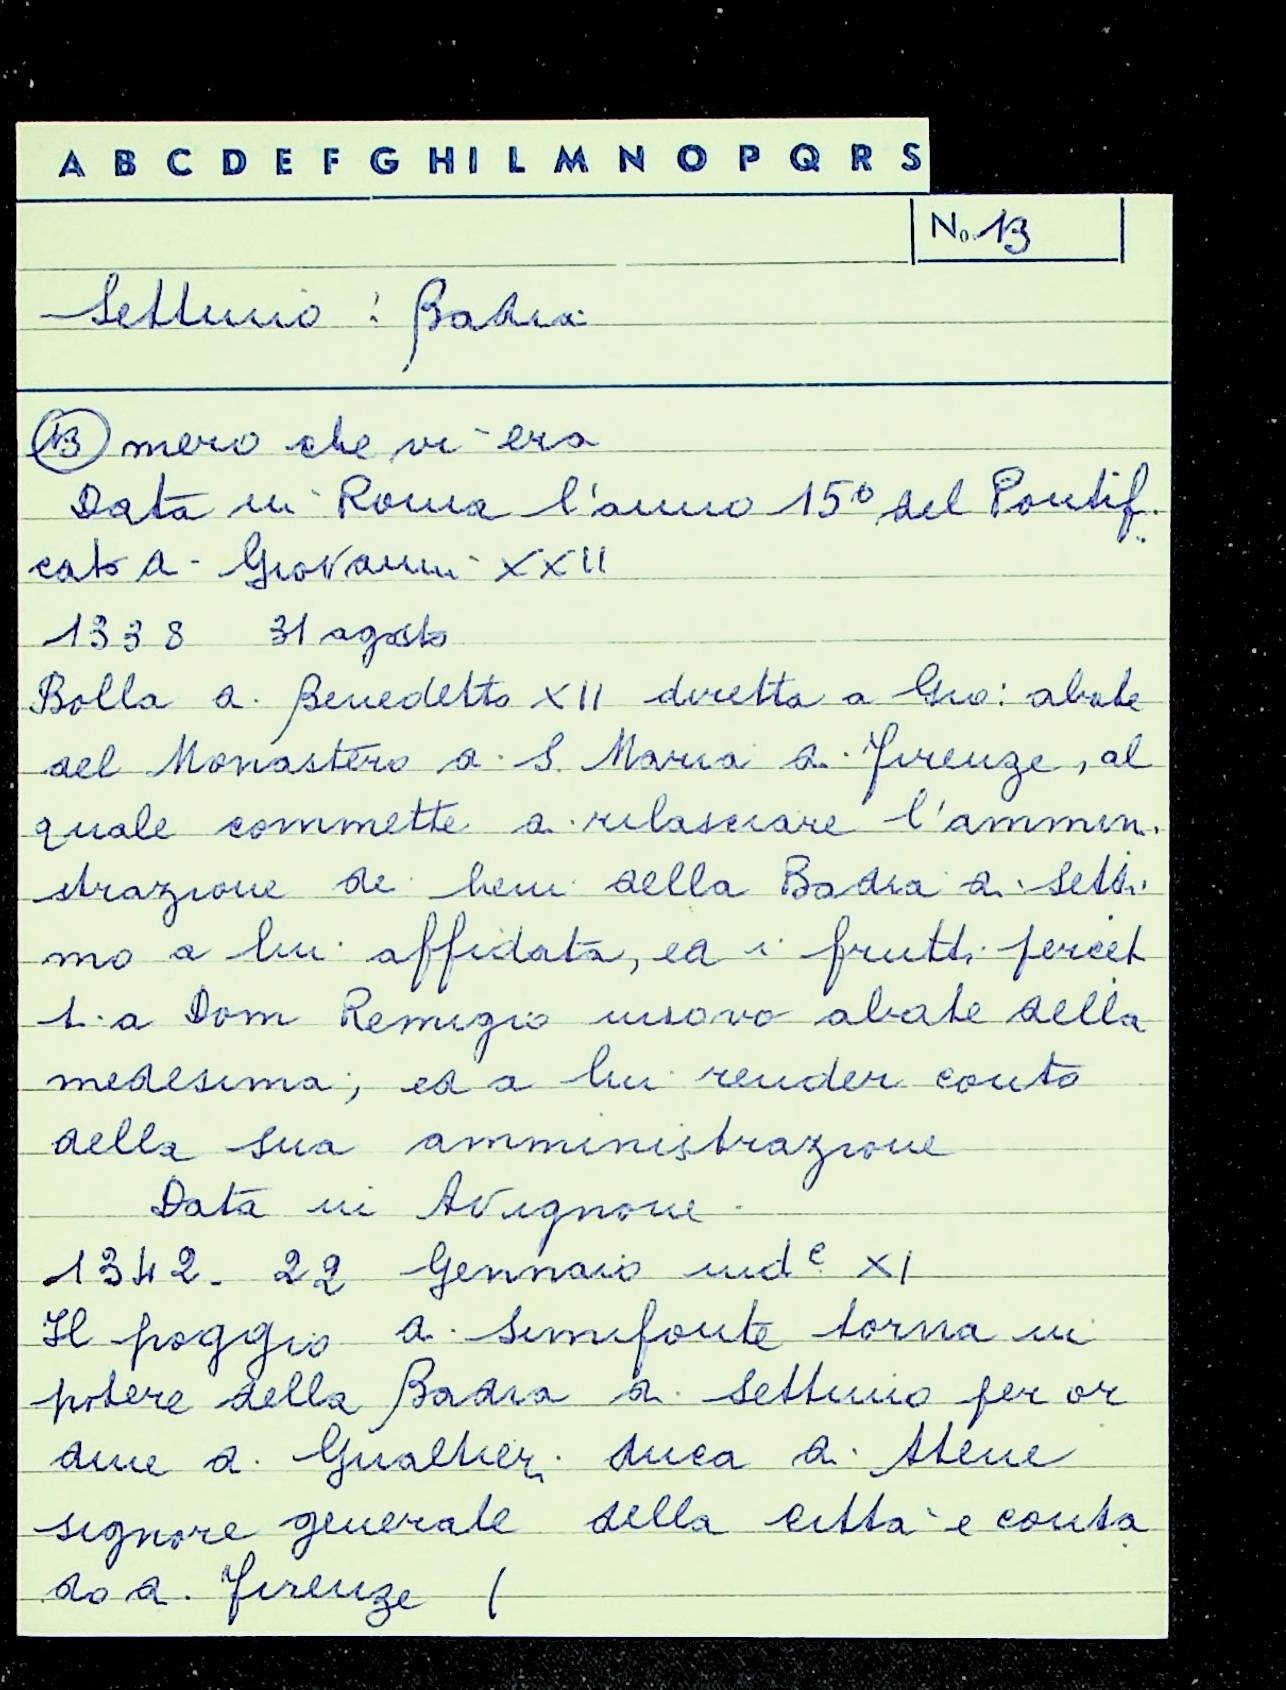 A B C D E F G H I L M N O P Q R S
No. 13
Settimo : Badia
13 mero che vi era
Data in Roma l'anno 15º del Pontifi
cato di Giovanni XXII
1338 31 agosto
Bolla di Benedetto XII diretta a Gio: abate
del Monastero di S. Maria di Firenze, al
quale commette di rilasciare l'ammini
strazione dei beni della Badia di Setti
mo a lui affidata, ed i frutti percet
ti a Dom Remigio nuovo abate della
medesima; ed a lui render conto
della sua amministrazione
Data in Avignone
1342. 22 Gennaio indᵉ XI
Il poggio di Simifonte torna in
potere della Badia di Settimo per or
dine di Gualtieri duca di Atene
signore generale della città e conta
do di Firenze (